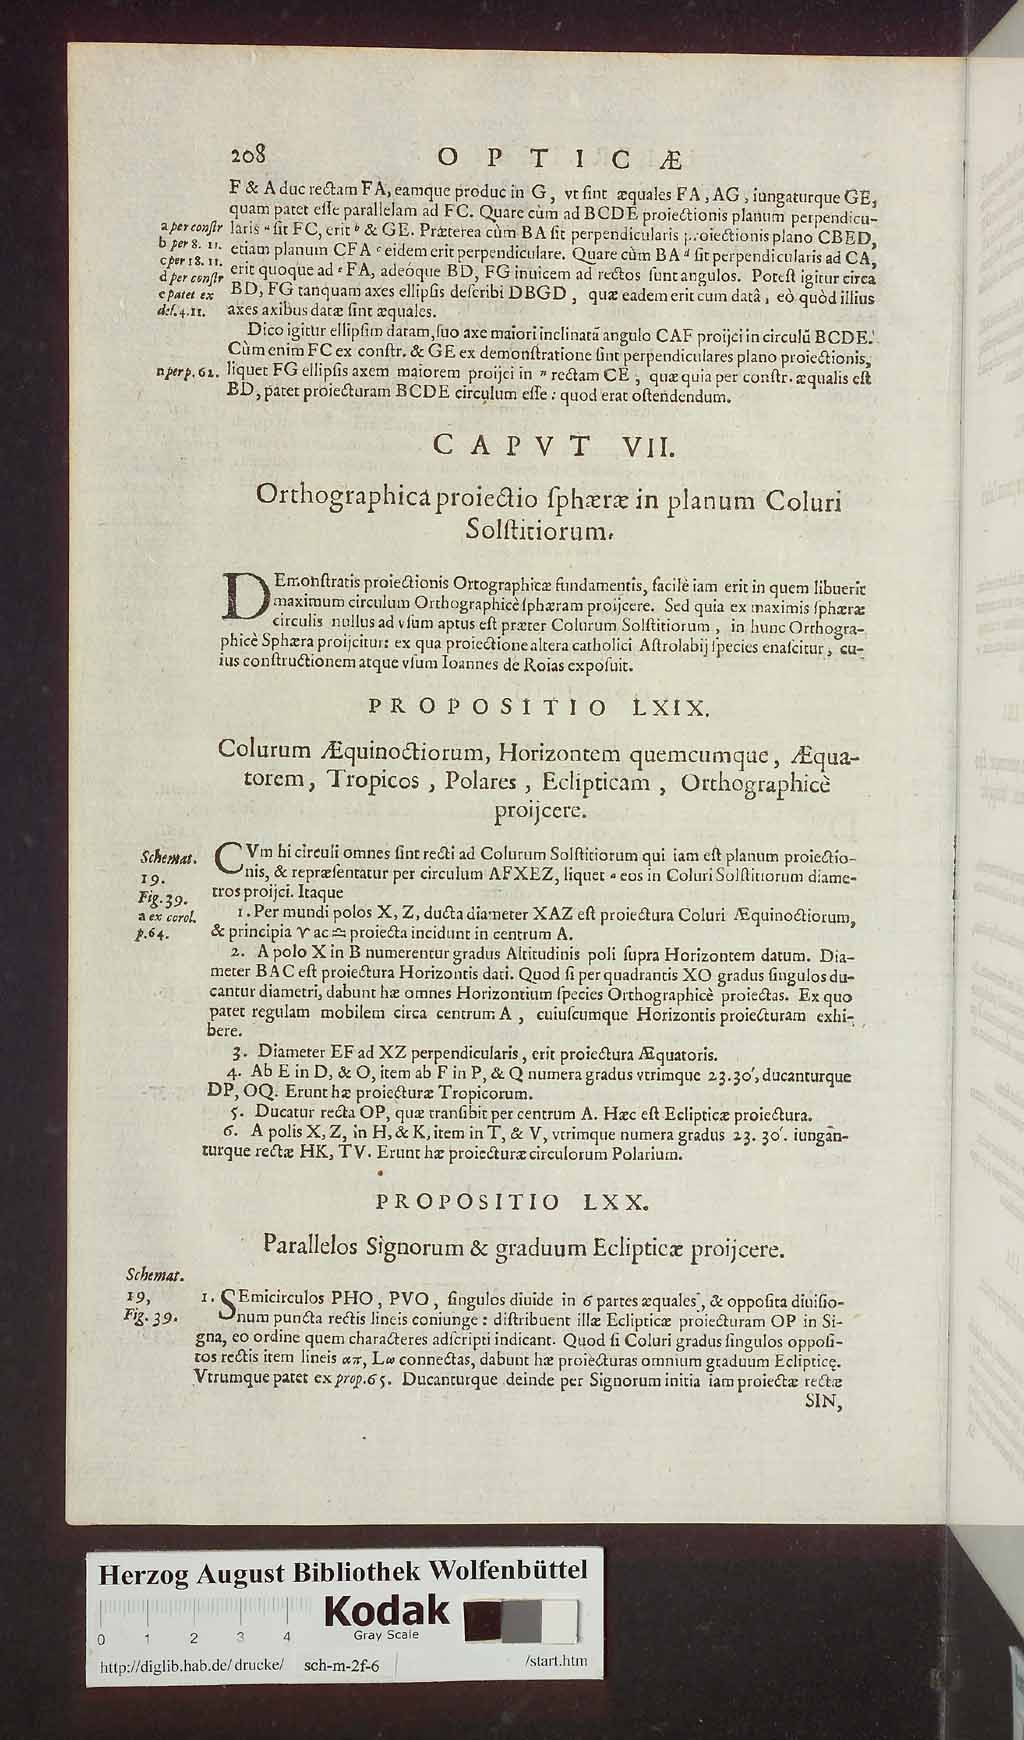 208 OPTICÆ
F & A duc rectam FA, eamque produc in G, vt ſint æquales FA, AG, iungaturque GE,
quam patet eſſe parallelam ad FC. Quare cùm ad BCDE proiectionis planum perpendicu-
a per conſtr laris ª ſit FC, erit ᵇ & GE. Præterea cùm BA ſit perpendicularis proiectionis plano CBED,
b per 8. 11. etiam planum CFA ᶜ eidem erit perpendiculare. Quare cùm BA ᵈ ſit perpendicularis ad CA,
c per 18. 11.
d per conſtr erit quoque ad ᵉ FA, adeóque BD, FG inuicem ad rectos ſunt angulos. Poteſt igitur circa
e patet ex BD, FG tanquam axes ellipſis deſcribi DBGD, quæ eadem erit cum datâ, eò quòd illius
def. 4. 11. axes axibus datæ ſint æquales.
Dico igitur ellipſim datam, ſuo axe maiori inclinatã angulo CAF proijci in circulũ BCDE.
Cùm enim FC ex conſtr. & GE ex demonſtratione ſint perpendiculares plano proiectionis,
n per p. 62. liquet FG ellipſis axem maiorem proijci in ⁿ rectam CE, quæ quia per conſtr. æqualis eſt
BD, patet proiecturam BCDE circulum eſſe: quod erat oſtendendum.
CAPVT VII.
Orthographica proiectio ſphæræ in planum Coluri
Solſtitiorum.
DEmonſtratis proiectionis Ortographicæ fundamentis, facilè iam erit in quem libuerit
maximum circulum Orthographicè ſphæram proijcere. Sed quia ex maximis ſphæræ
circulis nullus ad vſum aptus eſt præter Colurum Solſtitiorum, in hunc Orthogra-
phicè Sphæra proijcitur: ex qua proiectione altera catholici Aſtrolabij ſpecies enaſcitur, cu-
ius conſtructionem atque vſum Ioannes de Roias expoſuit.
PROPOSITIO LXIX.
Colurum Æquinoctiorum, Horizontem quemcumque, Æqua-
torem, Tropicos, Polares, Eclipticam, Orthographicè
proijcere.
Schemat. CVm hi circuli omnes ſint recti ad Colurum Solſtitiorum qui iam eſt planum proiectio-
19. nis, & repræſentatur per circulum AFXEZ, liquet ª eos in Coluri Solſtitiorum diame-
Fig. 39. tros proijci. Itaque
a ex corol. 1. Per mundi polos X, Z, ducta diameter XAZ eſt proiectura Coluri Æquinoctiorum,
p. 64. & principia ♈ ac ♎ proiecta incidunt in centrum A.
2. A polo X in B numerentur gradus Altitudinis poli ſupra Horizontem datum. Dia-
meter BAC eſt proiectura Horizontis dati. Quod ſi per quadrantis XO gradus ſingulos du-
cantur diametri, dabunt hæ omnes Horizontium ſpecies Orthographicè proiectas. Ex quo
patet regulam mobilem circa centrum A, cuiuſcumque Horizontis proiecturam exhi-
bere.
3. Diameter EF ad XZ perpendicularis, erit proiectura Æquatoris.
4. Ab E in D, & O, item ab F in P, & Q numera gradus vtrimque 23.30′, ducanturque
DP, OQ. Erunt hæ proiecturæ Tropicorum.
5. Ducatur recta OP, quæ tranſibit per centrum A. Hæc eſt Eclipticæ proiectura.
6. A polis X, Z, in H, & K, item in T, & V, vtrimque numera gradus 23. 30′. iungan-
turque rectæ HK, TV. Erunt hæ proiecturæ circulorum Polarium.
PROPOSITIO LXX.
Parallelos Signorum & graduum Eclipticæ proijcere.
Schemat.
19, 1. SEmicirculos PHO, PVO, ſingulos diuide in 6 partes æquales, & oppoſita diuiſio-
Fig. 39. num puncta rectis lineis coniunge: diſtribuent illæ Eclipticæ proiecturam OP in Si-
gna, eo ordine quem characteres adſcripti indicant. Quod ſi Coluri gradus ſingulos oppoſi-
tos rectis item lineis απ, Lω connectas, dabunt hæ proiecturas omnium graduum Eclipticę.
Vtrumque patet ex prop. 65. Ducanturque deinde per Signorum initia iam proiectæ rectæ
SIN,
Herzog August Bibliothek Wolfenbüttel
Kodak
Gray Scale
0 1 2 3 4
http://diglib.hab.de/drucke/ sch-m-2f-6 /start.htm